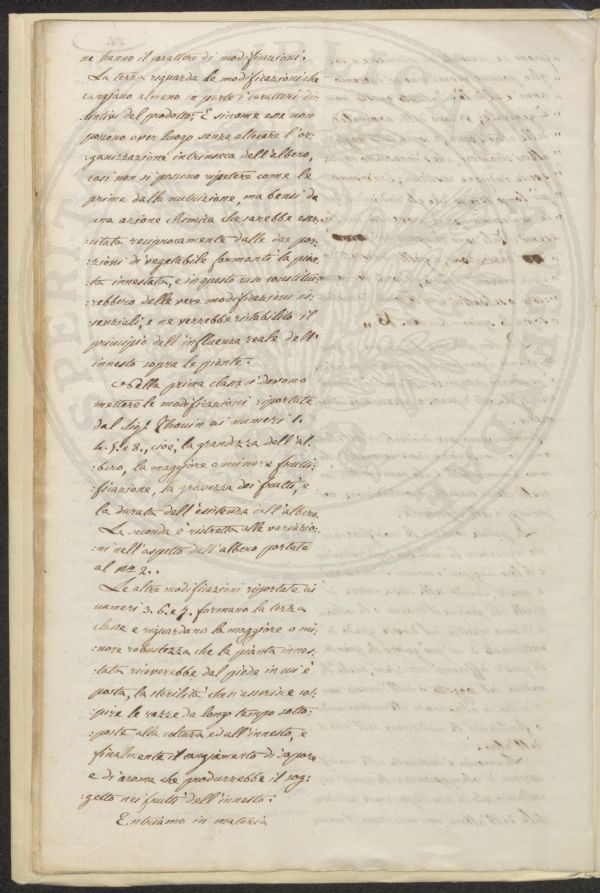 ne hanno il carattere di modificazioni.
La terza riguarda le modificazioni che
cangiano almeno in parte i caratteri di:
:stintivi del prodotto: E siccome esse non
possono aver luogo senza alterare l'or:
:ganizzazione intrinseca dell'albero,
così non si possono ripetere come le
prime dalla nutrizione, ma bensì da
una azione chimica che sarebbe eser:
:citata reciprocamente dalle due por:
:zioni di vegetabile formanti la pian:
:ta innestata, e in questo caso constitui:
:rebbero delle vere modificazioni es:
:senziali, e ne verrebbe ristabilito il
principio dell'influenza reale dell'
innesto sopra le piante.
Nella prima classe si devono
mettere le modificazioni riportate
dal Sigr. Thouin ai numeri 1.
4. 5. e 8., cioè, la grandezza dell'al:
:bero, la maggiore o minore frutti:
:ficazione, la grossezza dei frutti, e
la durata dell'esistenza dell'albero.
La seconda è ristretta alle variazio:
:ni nell'aspetto dell'albero portate
al no. 2..
Le altre modificazioni riportate ai
numeri 3. 6. e 7. formano la terza
classe e riguardano la maggiore o mi:
:nore robustezza che la pianta innes:
:tata riceverebbe dal piede in cui è
posta, la sterilità che si asserisce col:
:pire le razze da lungo tempo sotto:
:poste alla coltura ed all'innesto, e
finalmente il cangiamento di sapore
e di aroma che produrrebbe il sog:
:getto nei frutti dell'innesto.
Entriamo in materia